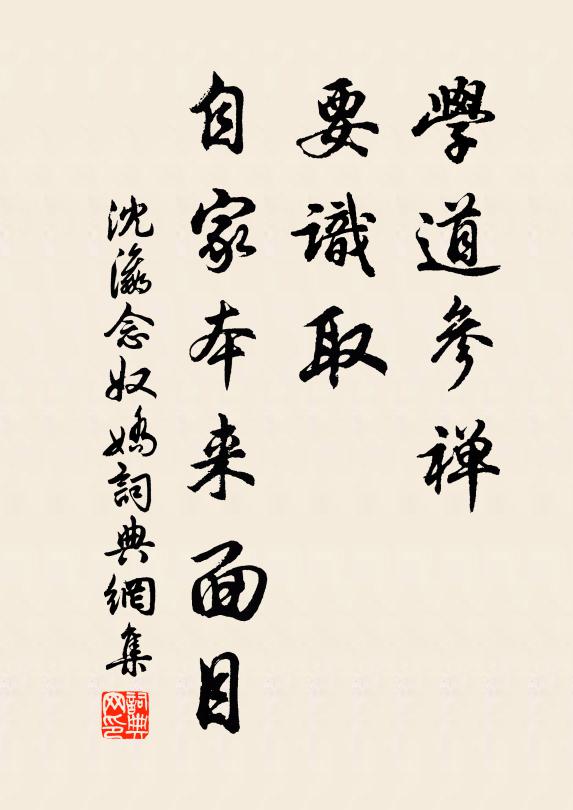 學道參禪
要識取
自家本来面目
沈瀛念奴嬌詞典網集
詞典网印